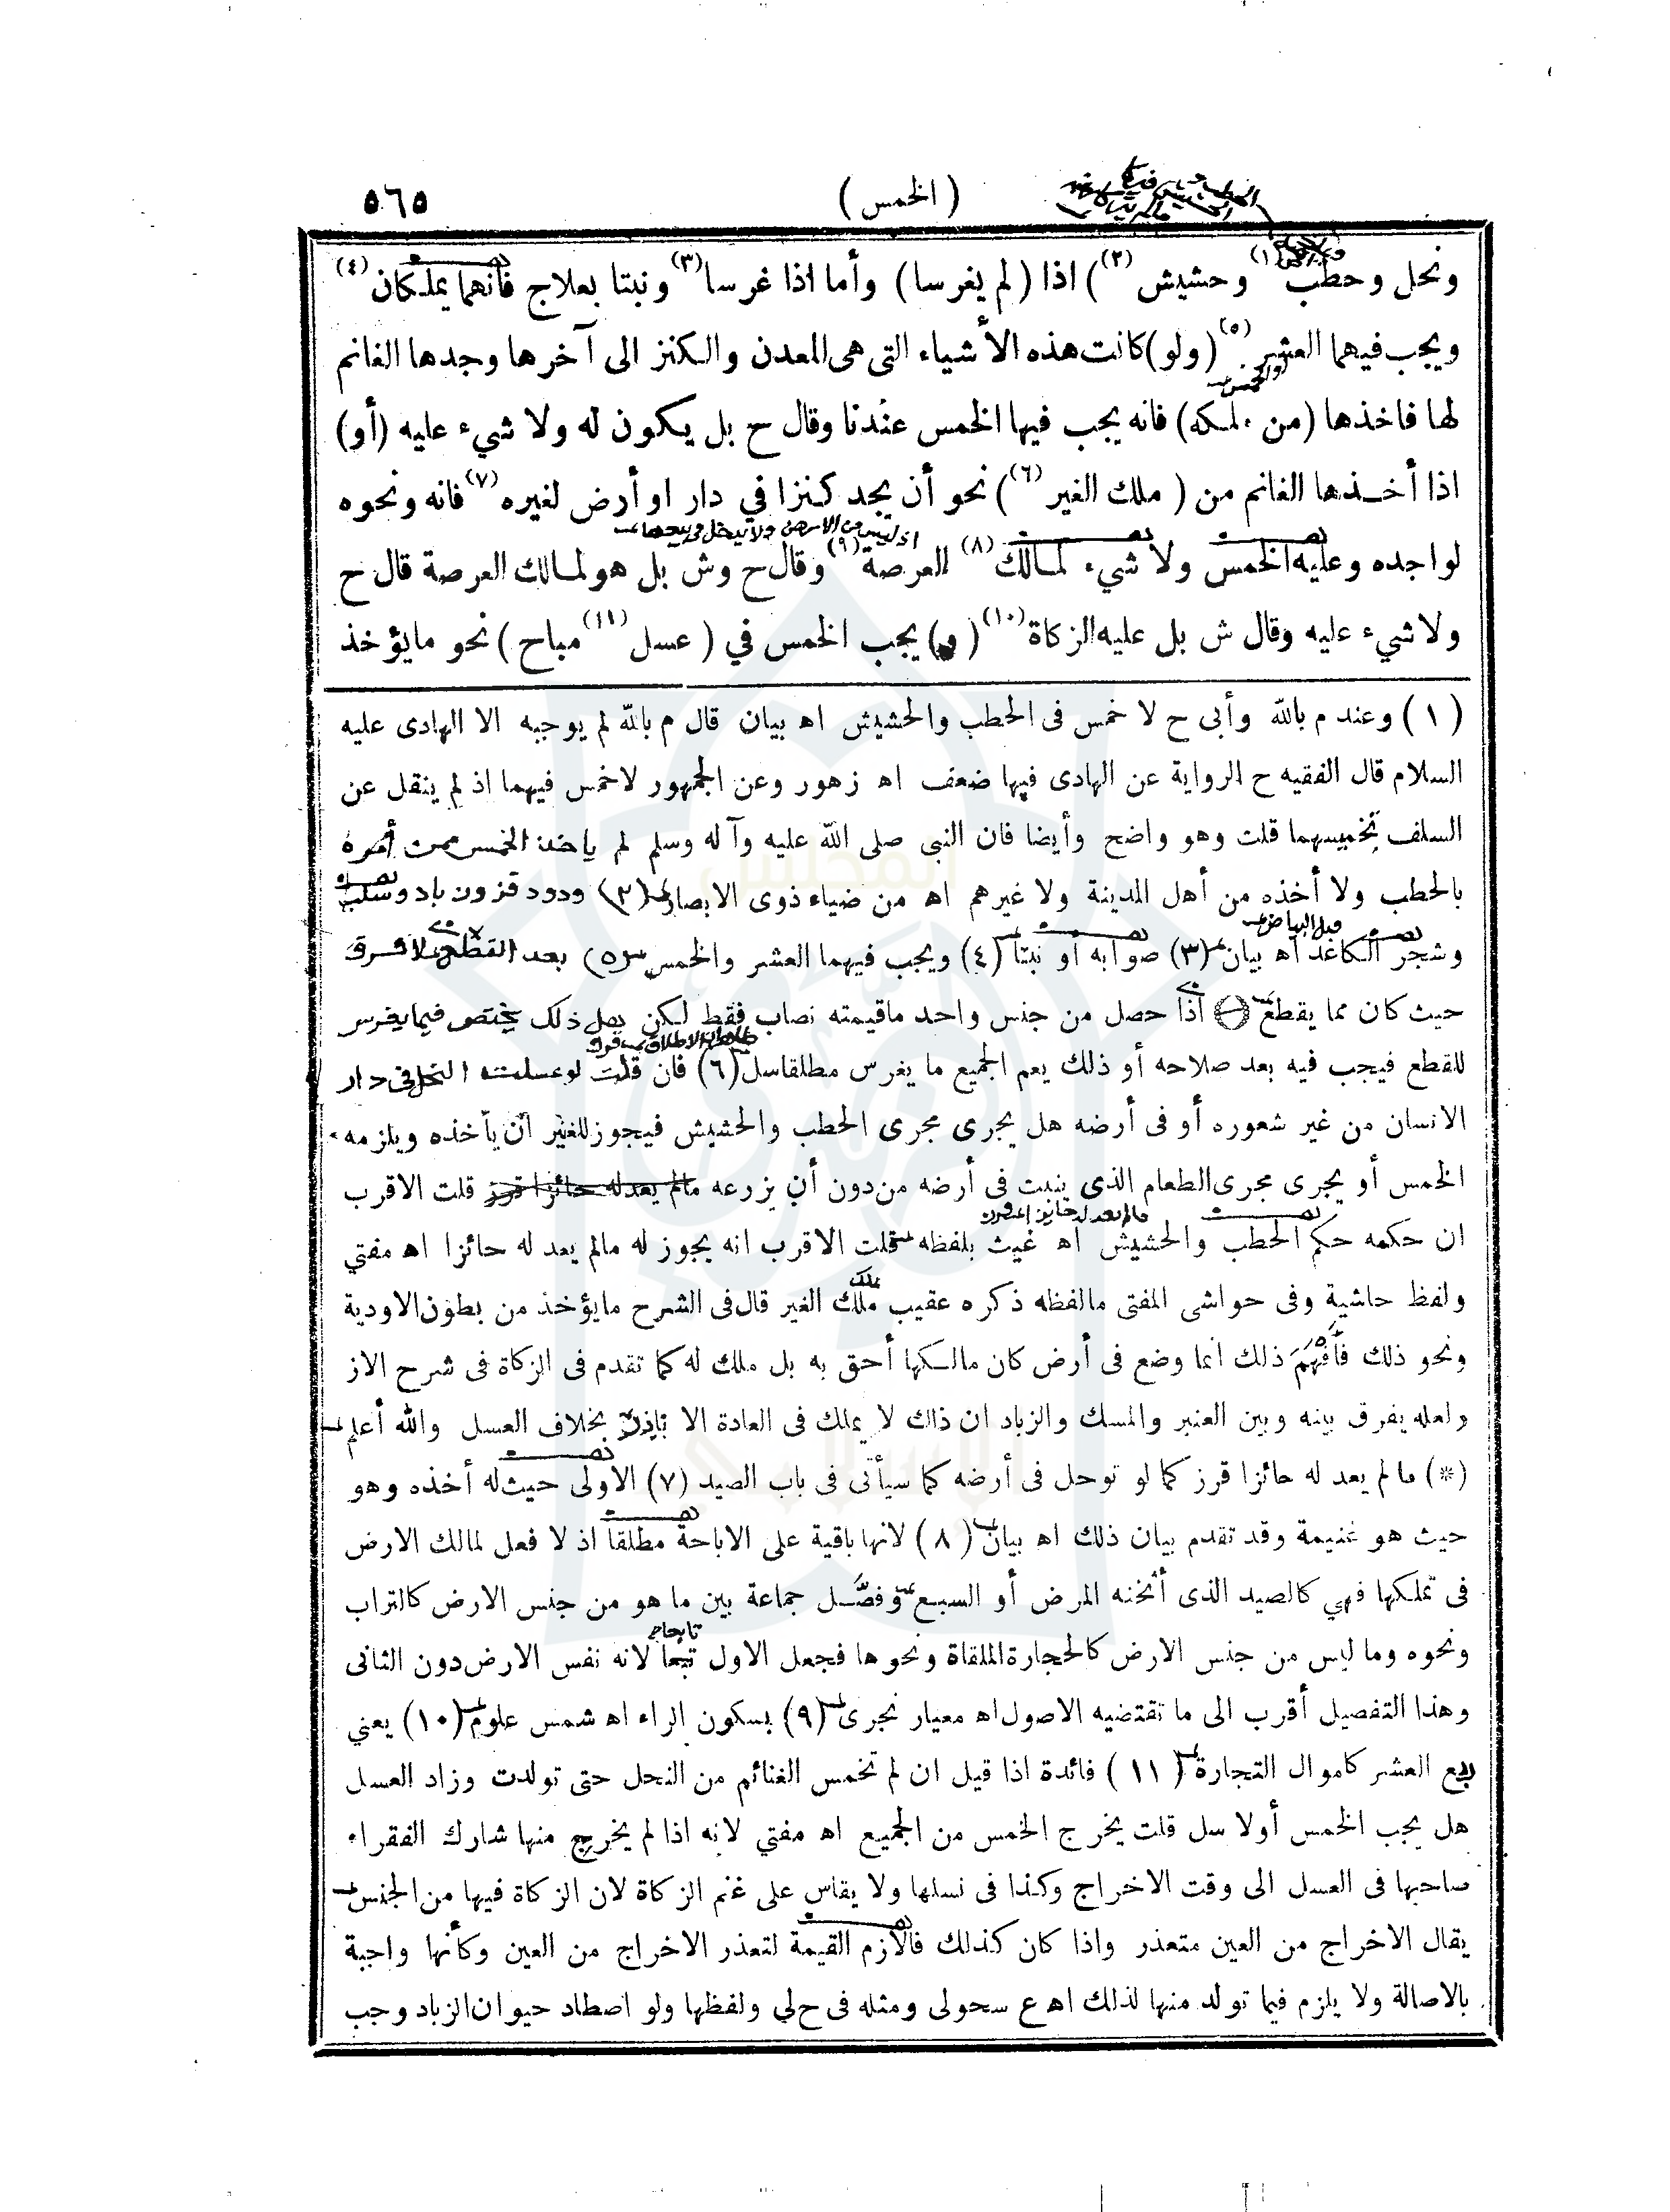 (الخمس)
٥٦٥
ونحل وحطب (١) وحشيش (٢)) اذا (لم يغرسا) وأما اذا غرسا (٣) ونبتا بعلاج فأنهما يملكان (٤)
ويجب فيهما العشر (٥) (ولو) كانت هذه الأشياء التى هى المعدن والكنز الى آخرها وجدها الغانم
والخمس
لها فاخذها (من ملكه) فانه يجب فيها الخمس عندنا وقال ح بل يكون له ولا شيء عليه (أو)
اذا أخذها الغانم من (ملك الغير (٦)) نحو أن يجد كنزا في دار او أرض لغيره (٧) فانه ونحوه
اذ ليس من الارض ولا يدخل في بيعها
لواجده وعليه الخمس ولا شيء لمالك (٨) العرصة (٩) وقال ح وش بل هو لمالك العرصة قال ح
ولا شيء عليه وقال ش بل عليه الزكاة (١٠) (و) يجب الخمس في (عسل (١١) مباح) نحو ما يؤخذ
(١) وعند م بالله وأبى ح لا خمس فى الحطب والحشيش اه بيان قال م بالله لم يوجبه الا الهادى عليه
السلام قال الفقيه ح الرواية عن الهادى فيها ضعف اه زهور وعن الجمهور لا خمس فيهما اذ لم ينقل عن
السلف تخميسهما قلت وهو واضح وأيضا فان النبى صلى الله عليه وآله وسلم لم يأخذ الخمس ممن أمره
بالحطب ولا أخذه من أهل المدينة ولا غيرهم اه من ضياء ذوى الابصار (٢) ودود قز ون باد وسلب
قبل البياض
وشجر الكاغد اه بيان (٣) صوابه او نبتا (٤) ويجب فيهما العشر والخمس (٥) بعد القطع ولا فرق
حيث كان مما يقطع اذا حصل من جنس واحد ما قيمته نصاب فقط لكن هل ذلك يختص فيما يغرس
ظاهر الاطلاق لا فرق
للقطع فيجب فيه بعد صلاحه أو ذلك يعم الجميع ما يغرس مطلقا سل (٦) فان قلت لو عسلت النحل فى دار
الانسان من غير شعوره أو فى أرضه هل يجرى مجرى الحطب والحشيش فيجوز للغير أن يأخذه ويلزمه
الخمس أو يجرى مجرى الطعام الذى ينبت فى أرضه من دون أن يزرعه مالم يعد له حائزا قرز قلت الاقرب
مالم يعد له حائزا
ان حكمه حكم الحطب والحشيش اه غيث بلفظه قلت الاقرب انه يجوز له مالم يعد له حائزا اه مفتي
ولفظ حاشية وفى حواشى المفتى مالفظه ذكره عقيب ملك الغير قال فى الشرح مايؤخذ من بطون الاودية
ونحو ذلك فأفهم ذلك انما وضع فى أرض كان مالكها أحق به بل ملك له كما تقدم فى الزكاة فى شرح الاز
ولعله يفرق بينه وبين العنبر والمسك والزباد ان ذاك لا يملك فى العادة الا باذن بخلاف العسل والله أعلم
(*) ما لم يعد له حائزا قرز كما لو توحل فى أرضه كما سيأتى فى باب الصيد (٧) الاولى حيث له أخذه وهو
حيث هو غنيمة وقد تقدم بيان ذلك اه بيان (٨) لانها باقية على الاباحة مطلقا اذ لا فعل لمالك الارض
فى تملكها فهي كالصيد الذى أثخنه المرض أو السبع وفصل جماعة بين ما هو من جنس الارض كالتراب
ونحوه وما ليس من جنس الارض كالحجارة الملقاة ونحوها فجعل الاول تبعا لانه نفس الارض دون الثانى
وهذا التفصيل أقرب الى ما تقتضيه الاصول اه معيار نجرى (٩) بسكون الراء اه شمس علوم (١٠) يعني
ربع العشر كاموال التجارة (١١) فائدة اذا قيل ان لم تخمس الغنائم من النحل حتى تولدت وزاد العسل
هل يجب الخمس أولا سل قلت يخرج الخمس من الجميع اه مفتي لانه اذا لم يخرج منها شارك الفقراء
صاحبها فى العسل الى وقت الاخراج وكذا فى نسلها ولا يقاس على غنم الزكاة لان الزكاة فيها من الجنس
يقال الاخراج من العين متعذر واذا كان كذلك فالازم القيمة لتعذر الاخراج من العين وكأنها واجبة
بالاصالة ولا يلزم فيما تولد منها لذلك اه ع سحولى ومثله فى ح لي ولفظها ولو اصطاد حيوان الزباد وجب